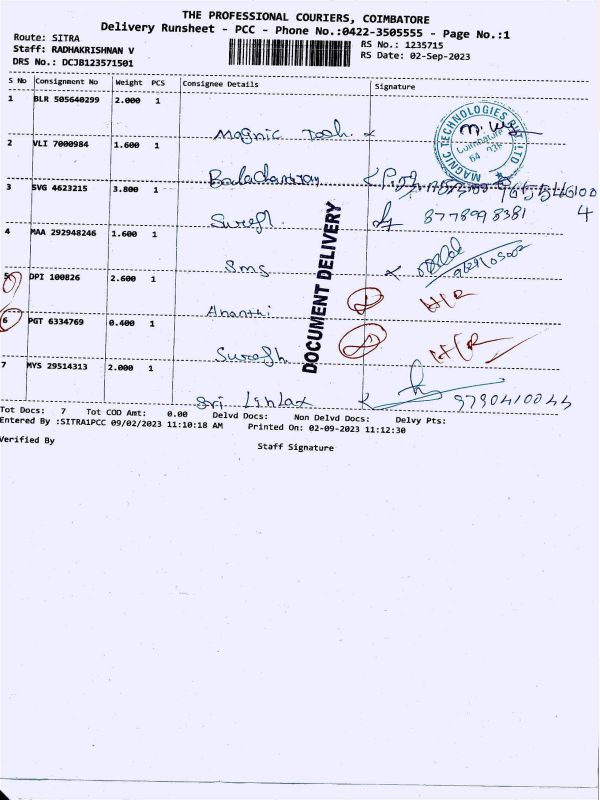 THE PROFESSIONAL COURIERS, COIMBATORE
Delivery Runsheet - PCC - Phone No.:0422-3505555 - Page No.:1
Route: SITRA
Staff: RADHAKRISHNAN V
DRS No.: DCJB123571501
RS No.: 1235715
RS Date: 02-Sep-2023
S No Consignment No Weight PCS Consignee Details Signature
1 BLR 505640299 2.000 1
Magnic Tech
MAGNIC TECHNOLOGIES PVT LTD
Coimbatore
2 VLI 7000984 1.600 1
3 SVG 4623215 3.800 1
Suresh 8778998381
4 MAA 292948246 1.600 1
Sms
5 DPI 100826 2.600 1
Ananthi
6 PGT 6334769 0.400 1
Suresh
7 MYS 29514313 2.000 1
Sri 9790410044
DOCUMENT DELIVERY
Tot Docs: 7 Tot COD Amt: 0.00 Delvd Docs: Non Delvd Docs: Delvy Pts:
Entered By :SITRA1PCC 09/02/2023 11:10:18 AM Printed On: 02-09-2023 11:12:30
Verified By
Staff Signature